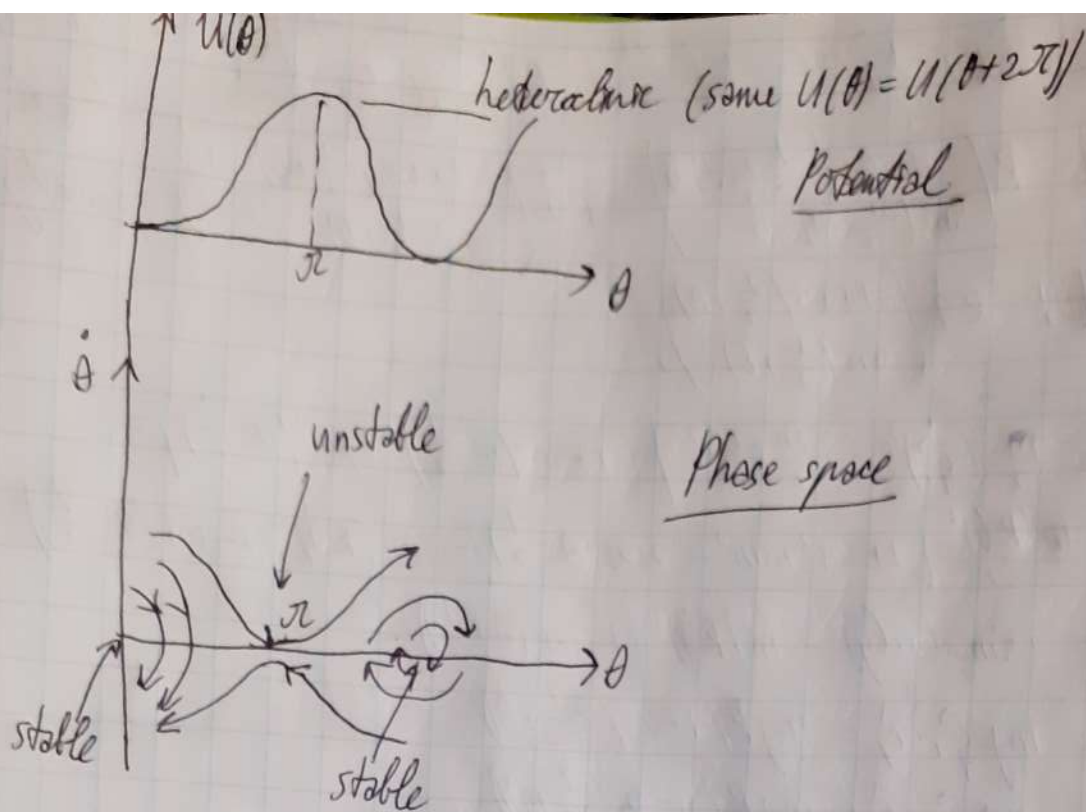 U(θ)
heteroclinic (same U(θ) = U(θ+2π))
Potential
π
θ
θ̇
unstable
Phase space
π
θ
stable
stable